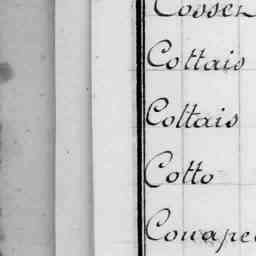 Cosser
Cottais
Coltais
Cotto
Couapel